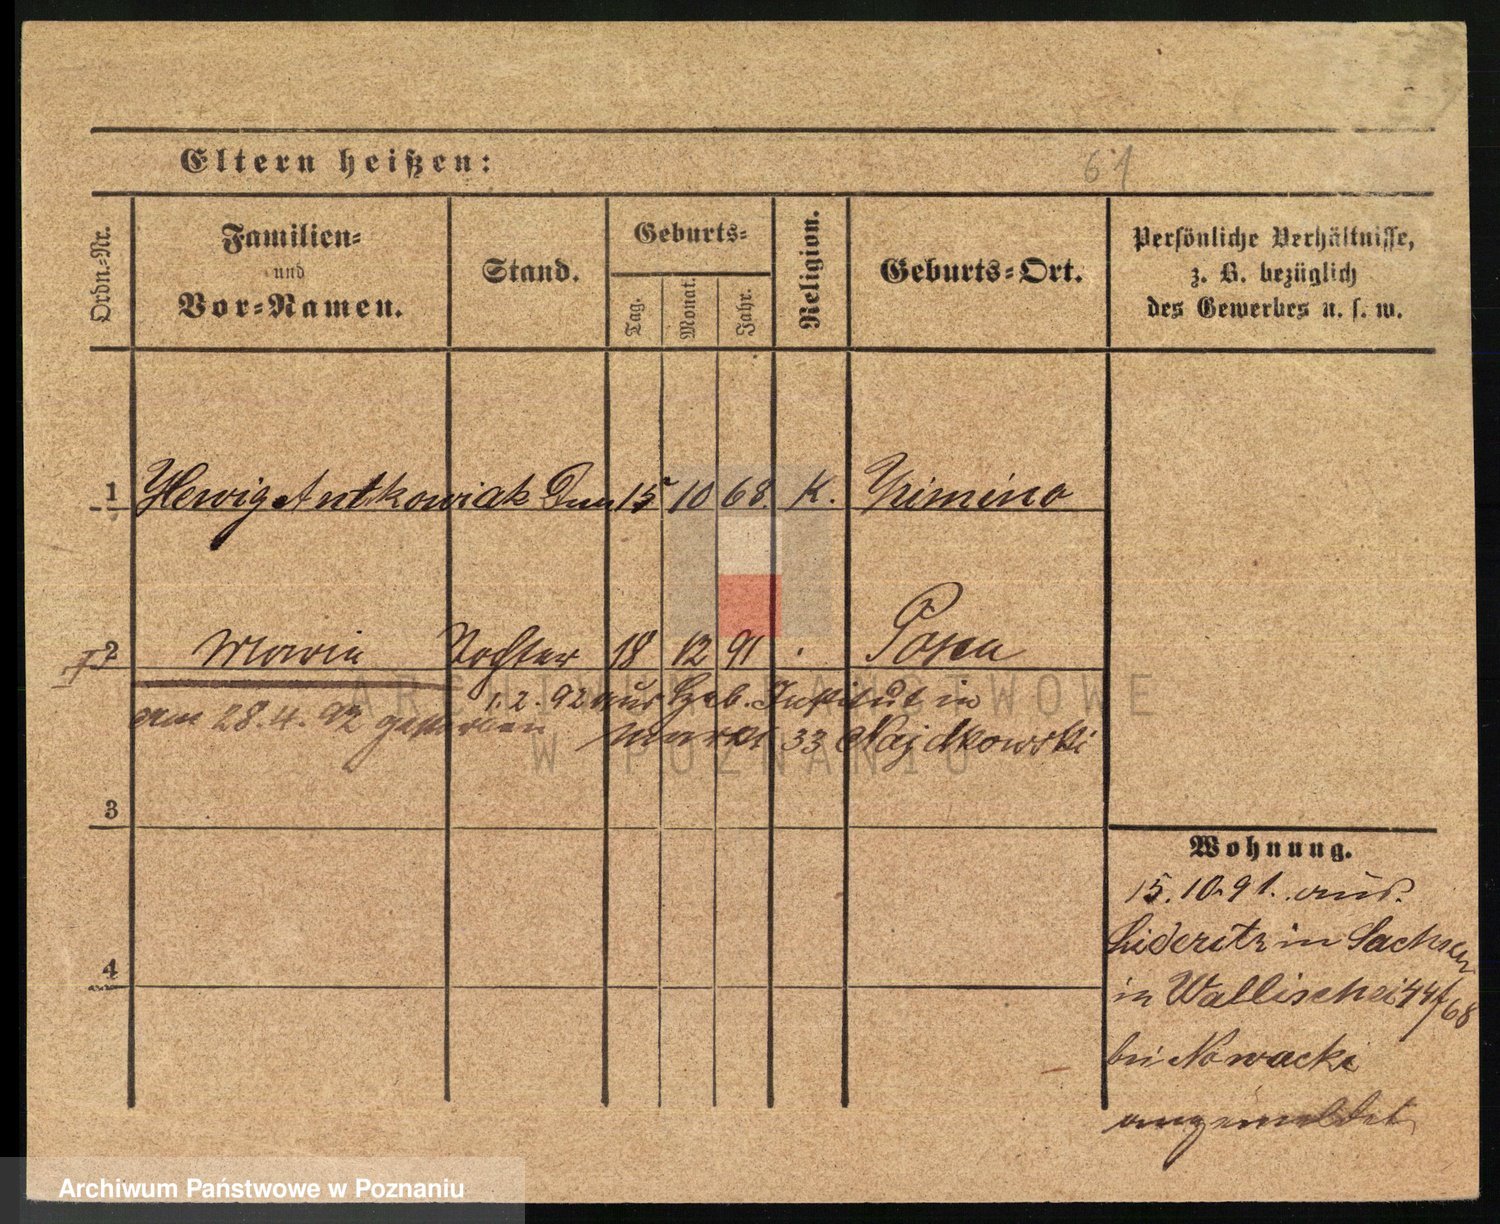 61
Eltern heißen:
Ordn.-Nr.
Familien-
und
Vor-Namen.
Stand.
Geburts-
Tag.
Monat.
Jahr.
Religion.
Geburts-Ort.
Persönliche Verhältnisse,
z. B. bezüglich
des Gewerbes u. s. w.
1 Hewig Antkowiak 15 10 68. K.
2 Maria Tochter 18 12 91 Posen
1. 2. 92 aus Geb. Institut in
am 28. 4. 92 gestorben
Markt 33 Najdkowski
3
4
Wohnung.
15. 10. 91. aus
Lideritz in Sachsen
in Wallischei 44/68
bei Nowacki
angemeldet
ARCHIWUM PAŃSTWOWE
W POZNANIU
Archiwum Państwowe w Poznaniu